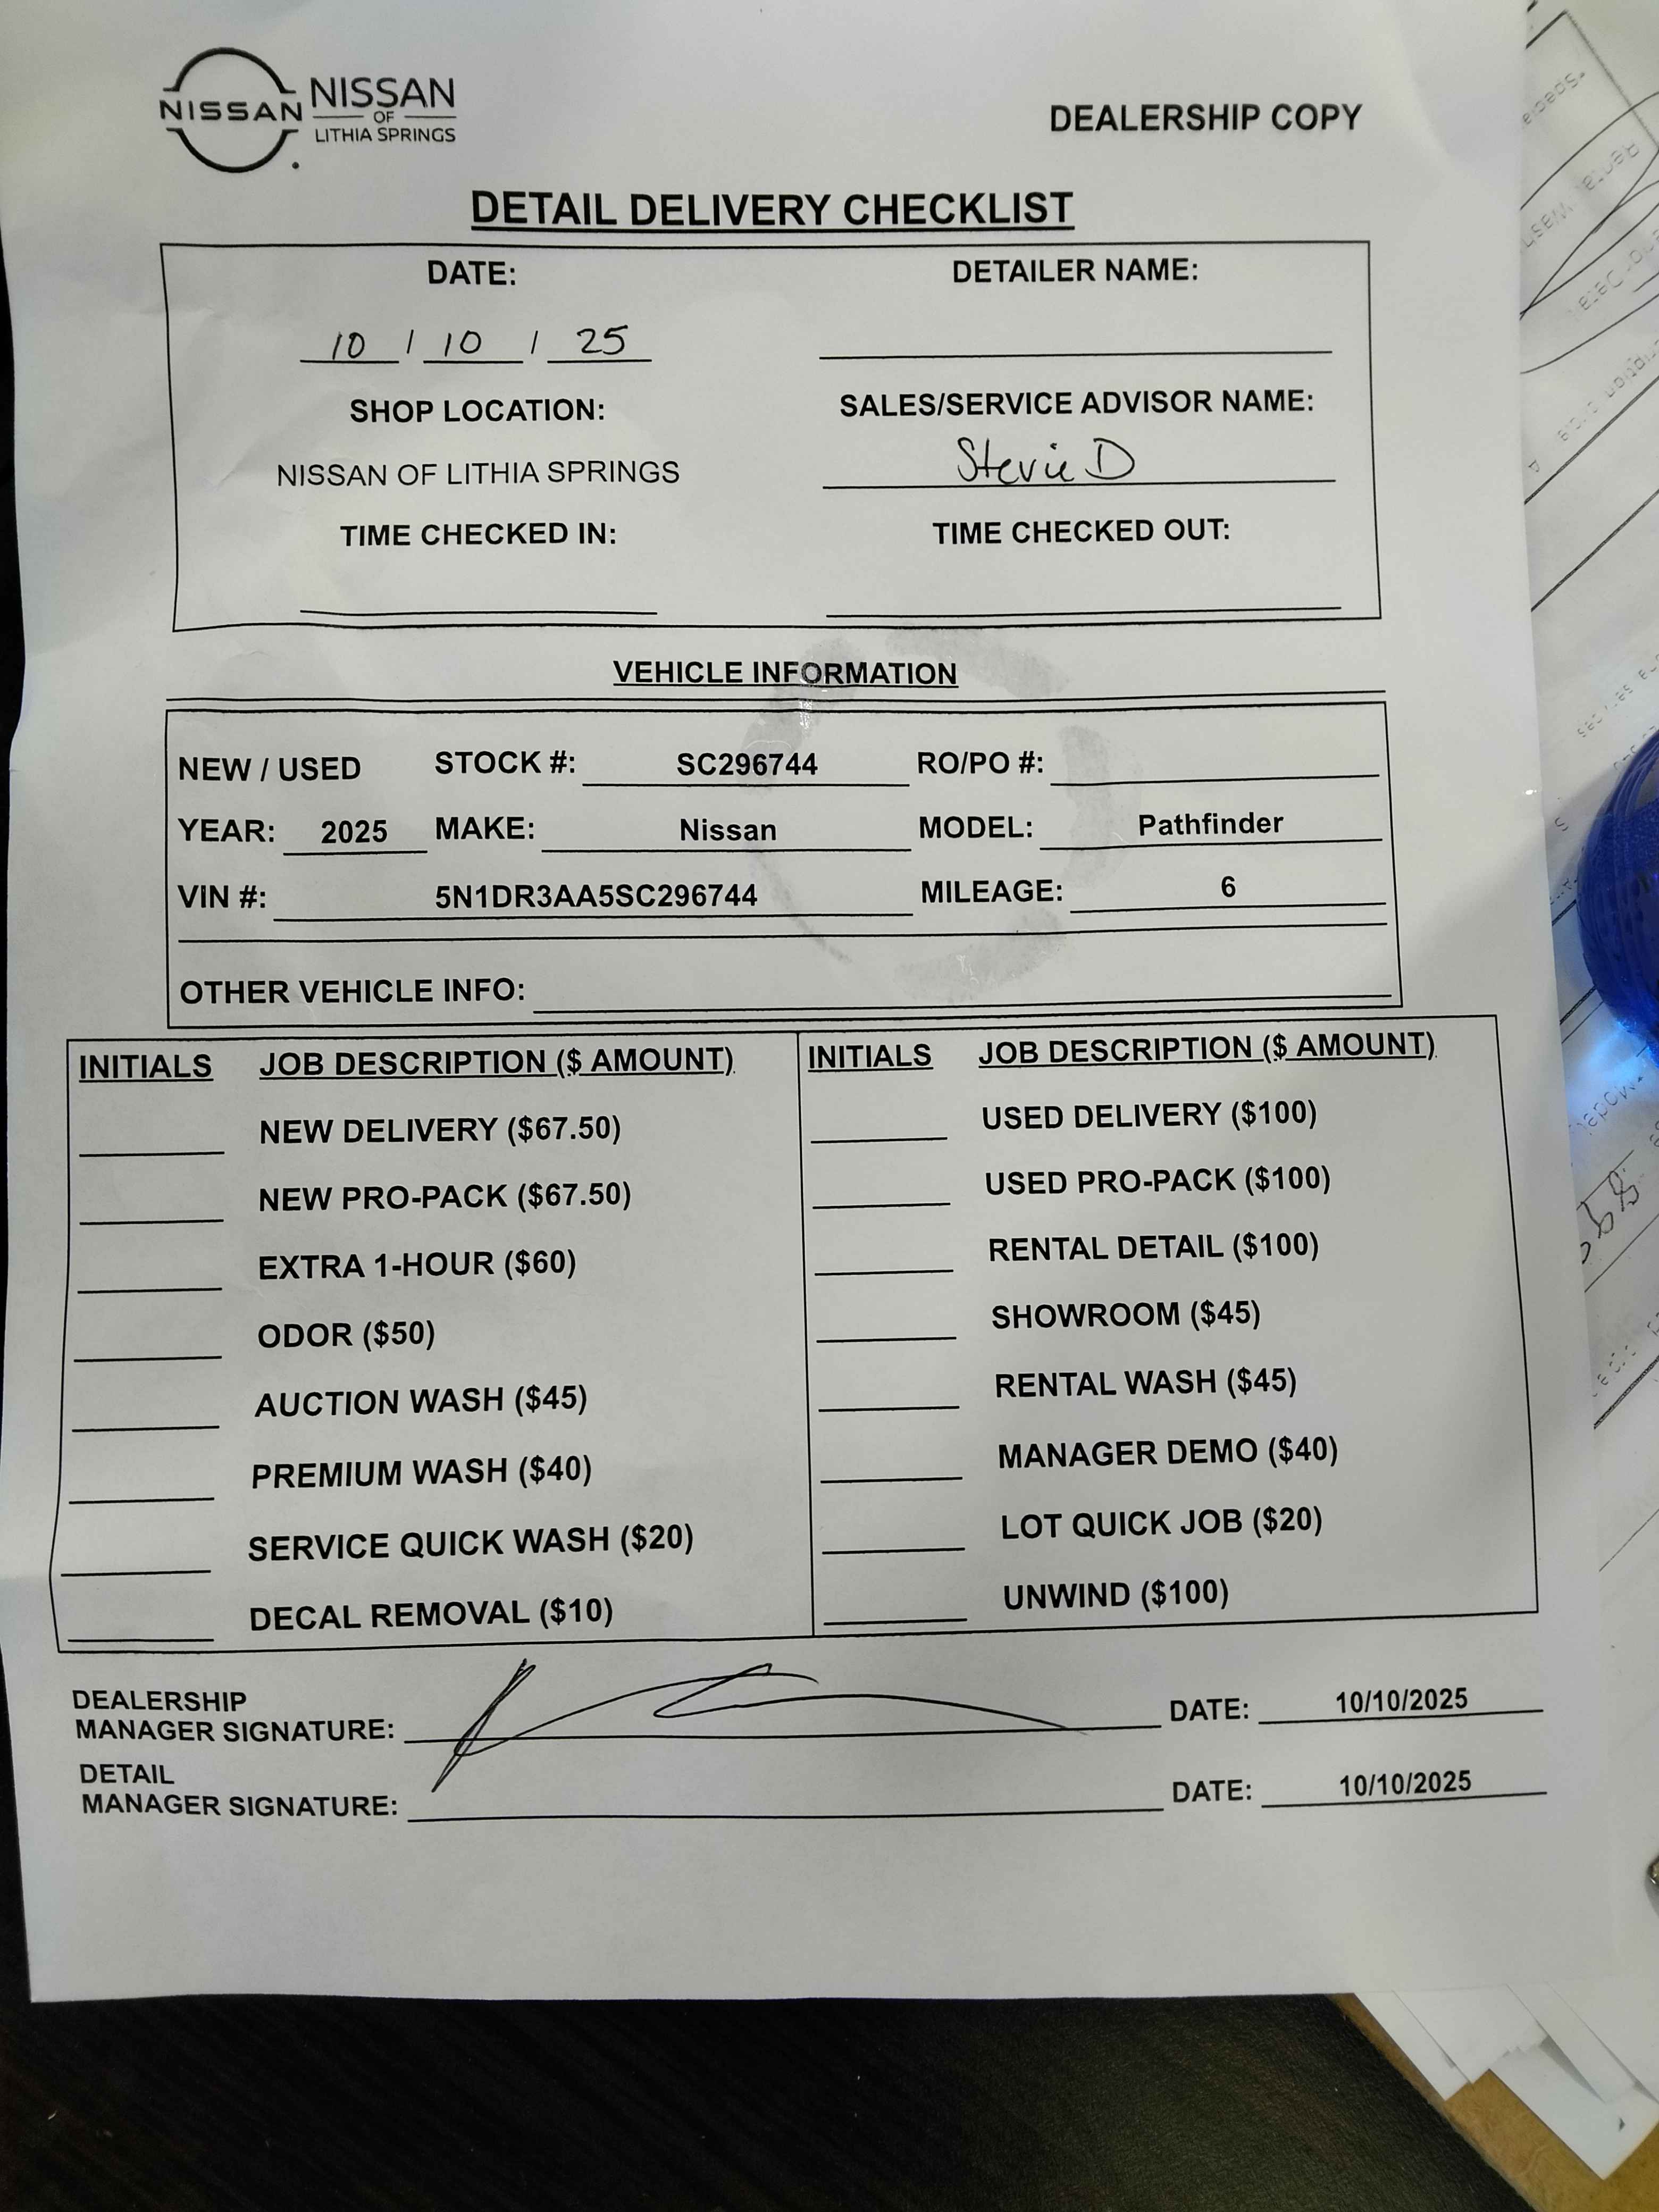 NISSAN
NISSAN
OF
LITHIA SPRINGS
DEALERSHIP COPY
DETAIL DELIVERY CHECKLIST
DATE: DETAILER NAME:
10 / 10 / 25
SHOP LOCATION: SALES/SERVICE ADVISOR NAME:
NISSAN OF LITHIA SPRINGS Stevie D
TIME CHECKED IN: TIME CHECKED OUT:
VEHICLE INFORMATION
NEW / USED STOCK #: SC296744 RO/PO #:
YEAR: 2025 MAKE: Nissan MODEL: Pathfinder
VIN #: 5N1DR3AA5SC296744 MILEAGE: 6
OTHER VEHICLE INFO:
INITIALS JOB DESCRIPTION ($ AMOUNT) INITIALS JOB DESCRIPTION ($ AMOUNT)
NEW DELIVERY ($67.50) USED DELIVERY ($100)
NEW PRO-PACK ($67.50) USED PRO-PACK ($100)
EXTRA 1-HOUR ($60) RENTAL DETAIL ($100)
ODOR ($50) SHOWROOM ($45)
AUCTION WASH ($45) RENTAL WASH ($45)
PREMIUM WASH ($40) MANAGER DEMO ($40)
SERVICE QUICK WASH ($20) LOT QUICK JOB ($20)
DECAL REMOVAL ($10) UNWIND ($100)
DEALERSHIP
MANAGER SIGNATURE: DATE: 10/10/2025
DETAIL
MANAGER SIGNATURE: DATE: 10/10/2025